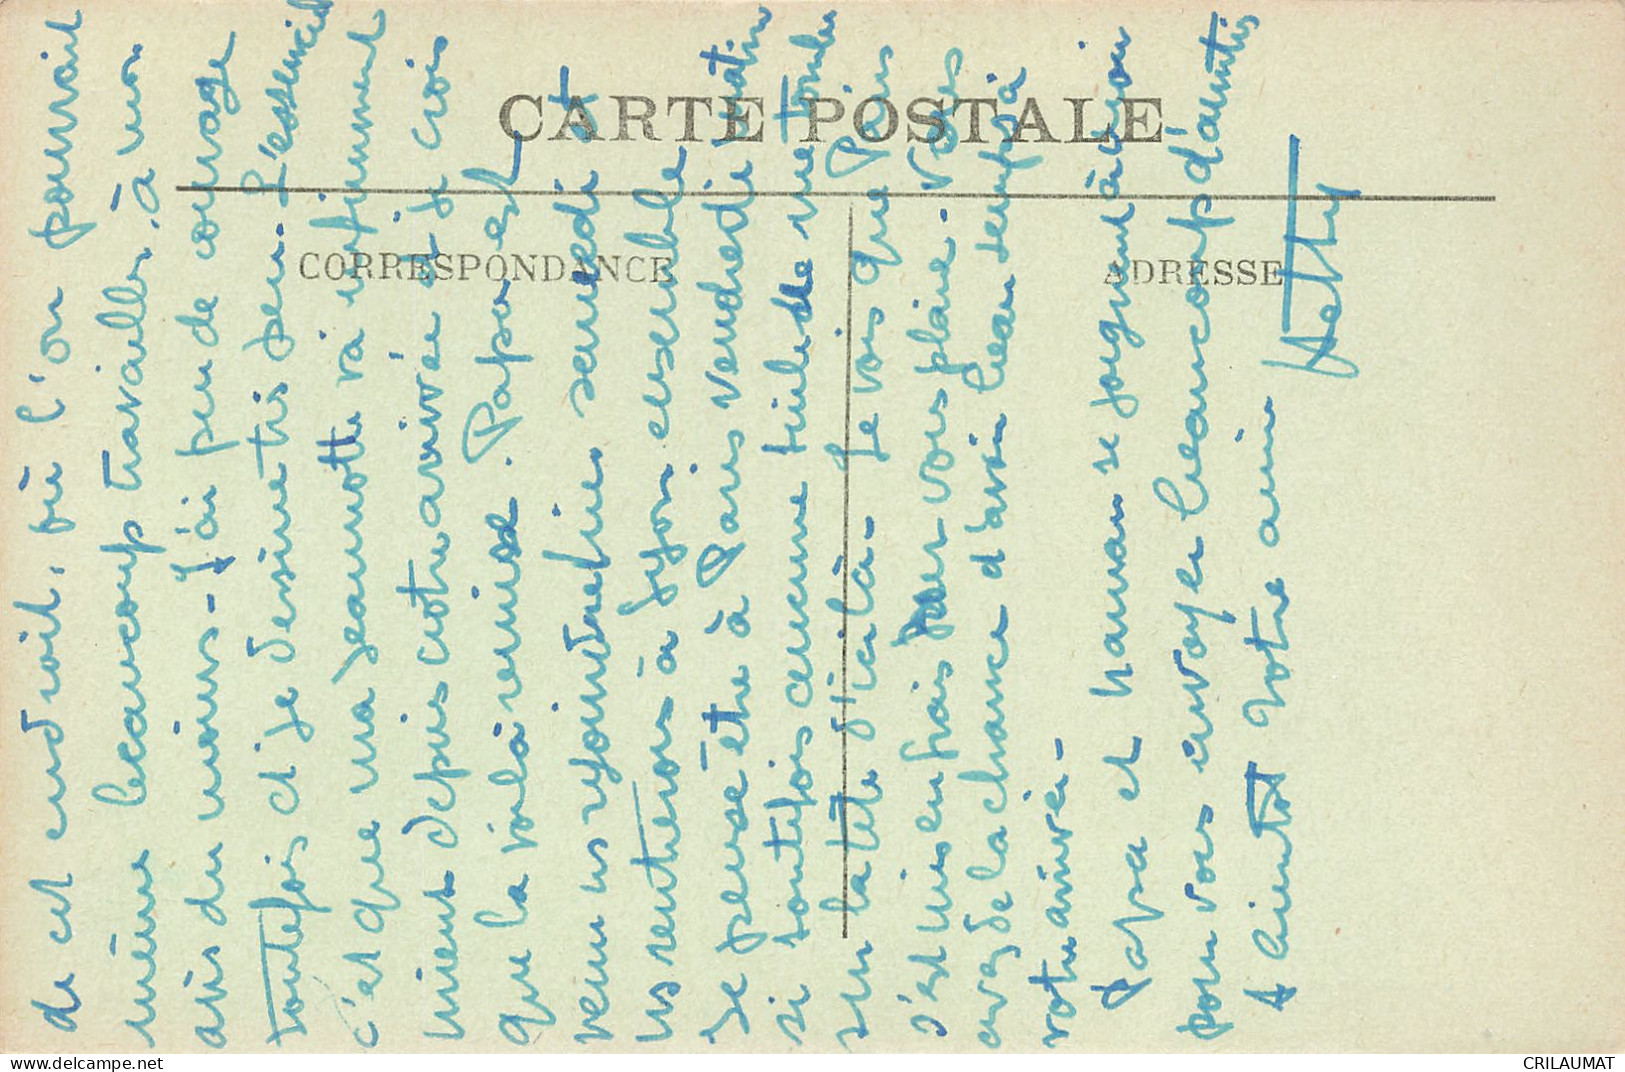 CARTE POSTALE
CORRESPONDANCE
ADRESSE
de cet endroit, où l'on pourrait
même beaucoup travailler, à mon
avis du moins - J'ai peu de courage
toutefois et je dessine très peu. L'essentiel
c'est que ma Jeannette va infiniment
mieux depuis notre arrivée et je crois
que la voilà remise. Papa est
venu ns rejoindre hier samedi et
ns rentrerons à Lyon ensemble
Je pense être à Paris vendredi matin
si toutefois aucune tuile ne me tombe
sur la tête d'ici là - Je vois que Paris
s'est mis en frais pour vous plaire - Vous
avez de la chance d'avoir beau temps à
votre arrivée -
Papa et maman se joignent à moi
pour vous envoyer beaucoup d'amitiés
A bientôt Votre amie
Hetty
CRILAUMAT